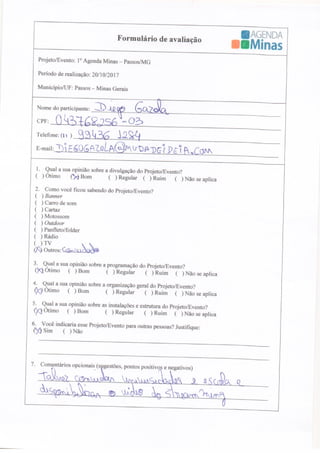 Formulário de avaliação
AGENDA
Minas
Projeto/Evento: 1º Agenda Minas – Passos/MG
Período de realização: 20/10/2017
Município/UF: Passos – Minas Gerais
Nome do participante: Diego Gazola
CPF: 043768256-03
Telefone: (11 ) 99436 1284
E-mail: DIEGOGAZOLA@MUDADEIDEIA.COM
1. Qual a sua opinião sobre a divulgação do Projeto/Evento?
( ) Ótimo (X) Bom ( ) Regular ( ) Ruim ( ) Não se aplica
2. Como você ficou sabendo do Projeto/Evento?
( ) Banner
( ) Carro de som
( ) Cartaz
( ) Motossom
( ) Outdoor
( ) Panfleto/folder
( ) Rádio
( ) TV
(X) Outros: Convidado
3. Qual a sua opinião sobre a programação do Projeto/Evento?
(X) Ótimo ( ) Bom ( ) Regular ( ) Ruim ( ) Não se aplica
4. Qual a sua opinião sobre a organização geral do Projeto/Evento?
(X) Ótimo ( ) Bom ( ) Regular ( ) Ruim ( ) Não se aplica
5. Qual a sua opinião sobre as instalações e estrutura do Projeto/Evento?
(X) Ótimo ( ) Bom ( ) Regular ( ) Ruim ( ) Não se aplica
6. Você indicaria esse Projeto/Evento para outras pessoas? Justifique:
(X) Sim ( ) Não
7. Comentários opcionais (sugestões, pontos positivos e negativos)
Talvez convidar universidades e escola e
disponibilizar o vídeo do streaming